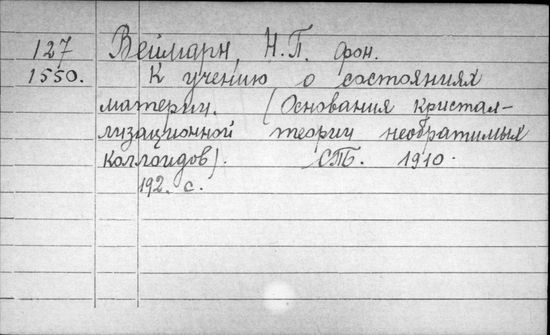 127 Веймарн, Н.П. фон.
1550. К учению о состояниях
материи. (Основания кристал-
лизационной теории необратимых
коллоидов). СПб. 1910.
192. с.